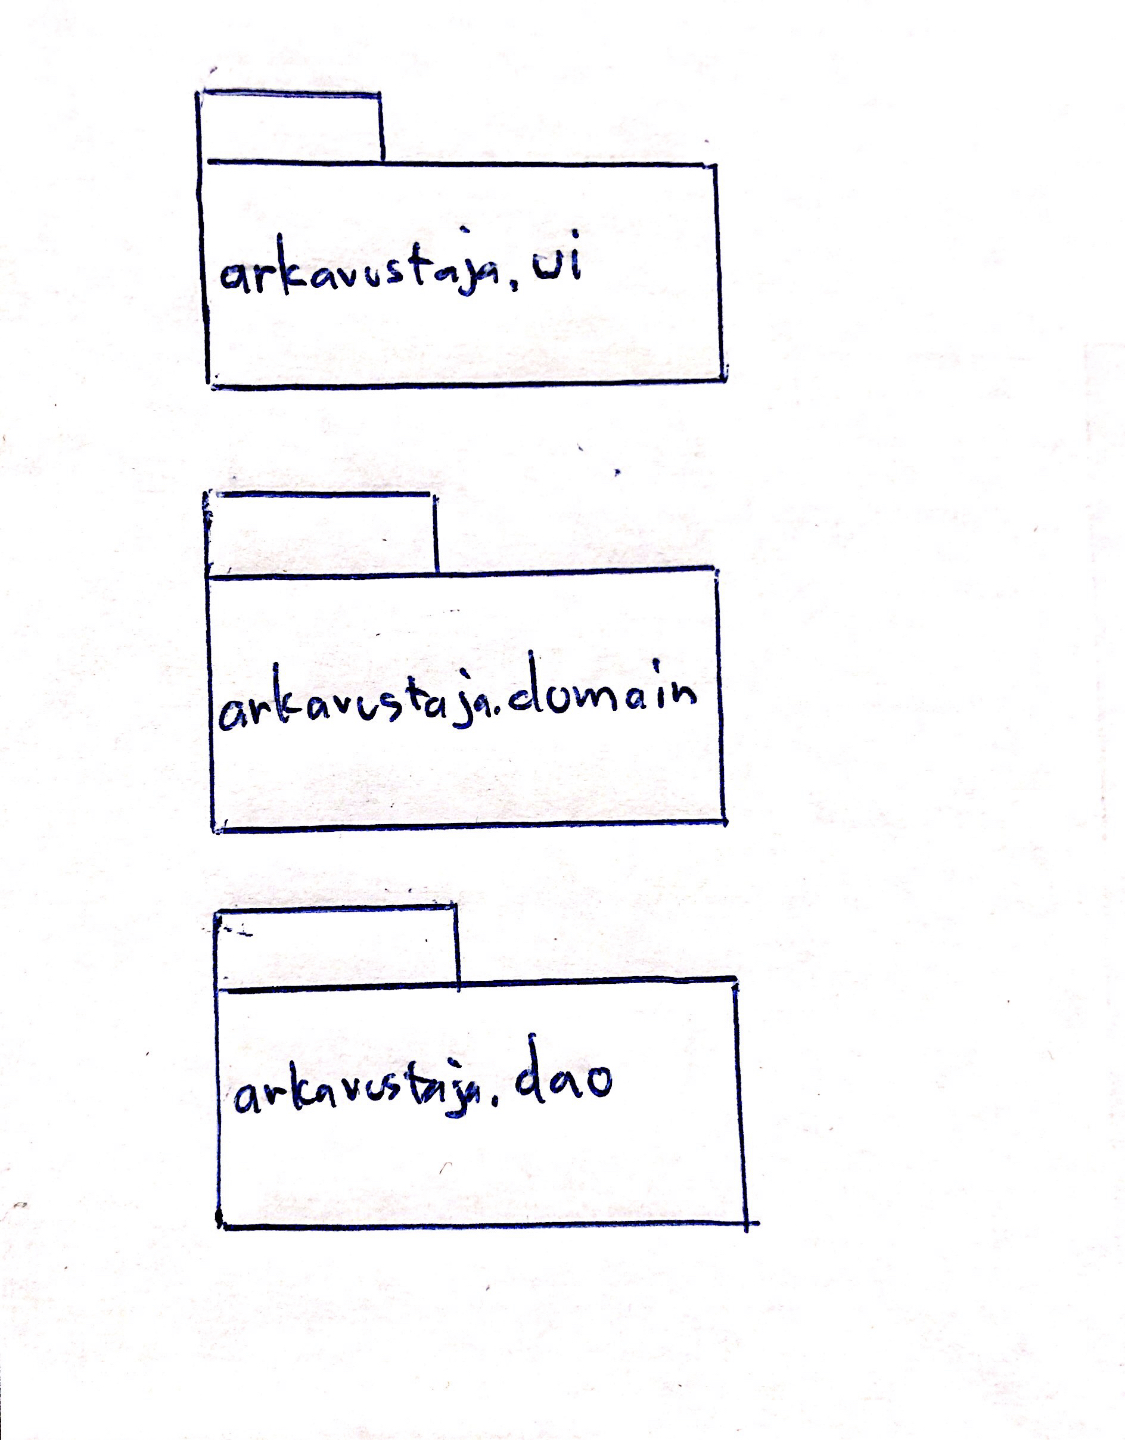 arkavustaja.ui
arkavustaja.domain
arkavustaja.dao